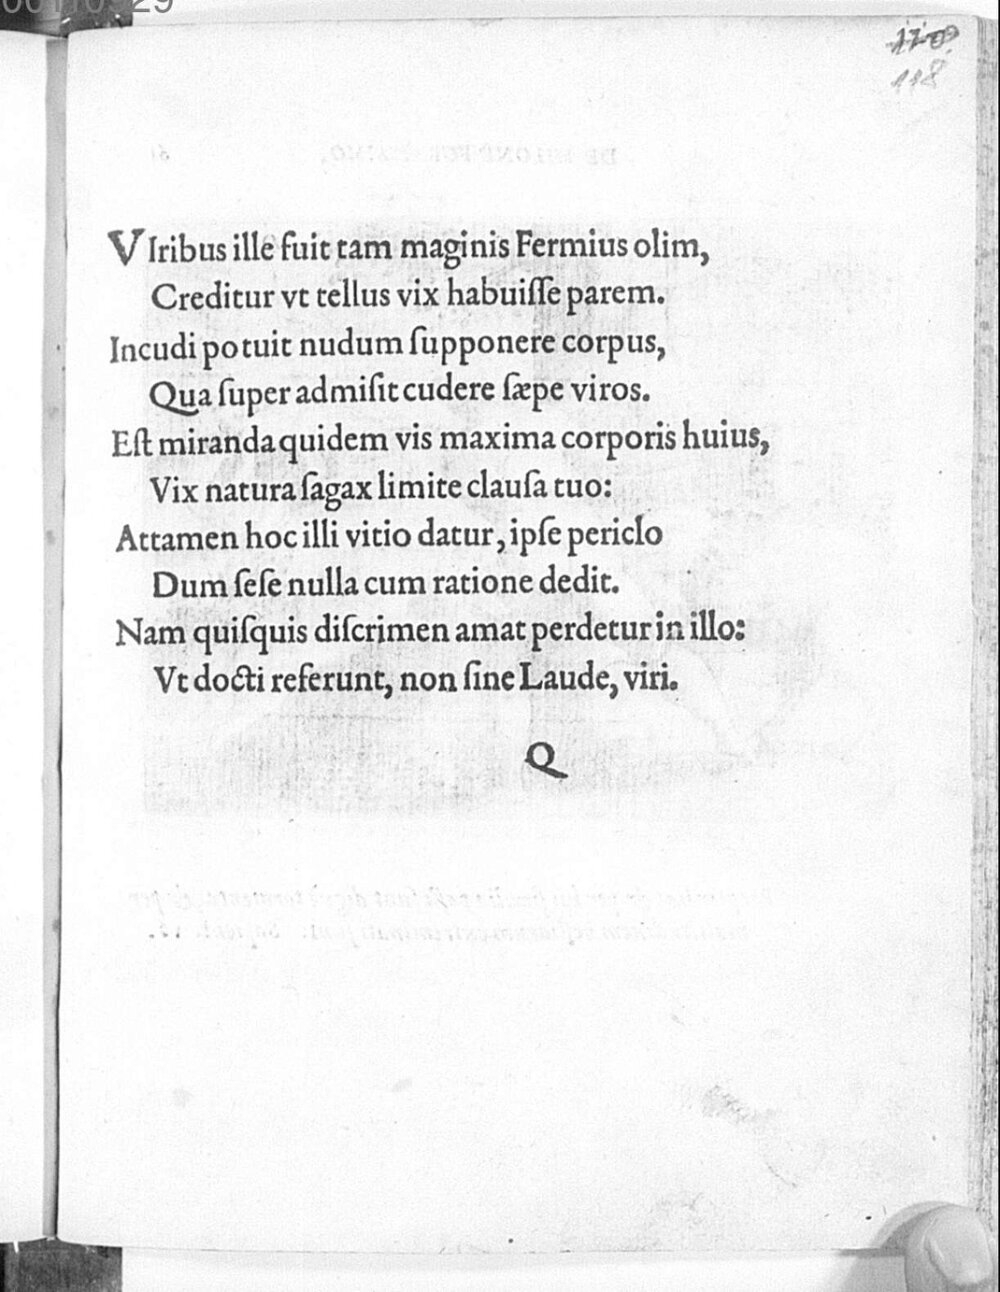 118
VIribus ille fuit tam maginis Fermius olim,
Creditur vt tellus vix habuiſſe parem.
Incudi potuit nudum ſupponere corpus,
Qua ſuper admiſit cudere ſæpe viros.
Eſt miranda quidem vis maxima corporis huius,
Vix natura ſagax limite clauſa tuo:
Attamen hoc illi vitio datur, ipſe periclo
Dum ſeſe nulla cum ratione dedit.
Nam quiſquis diſcrimen amat perdetur in illo:
Vt docti referunt, non ſine Laude, viri.
Q